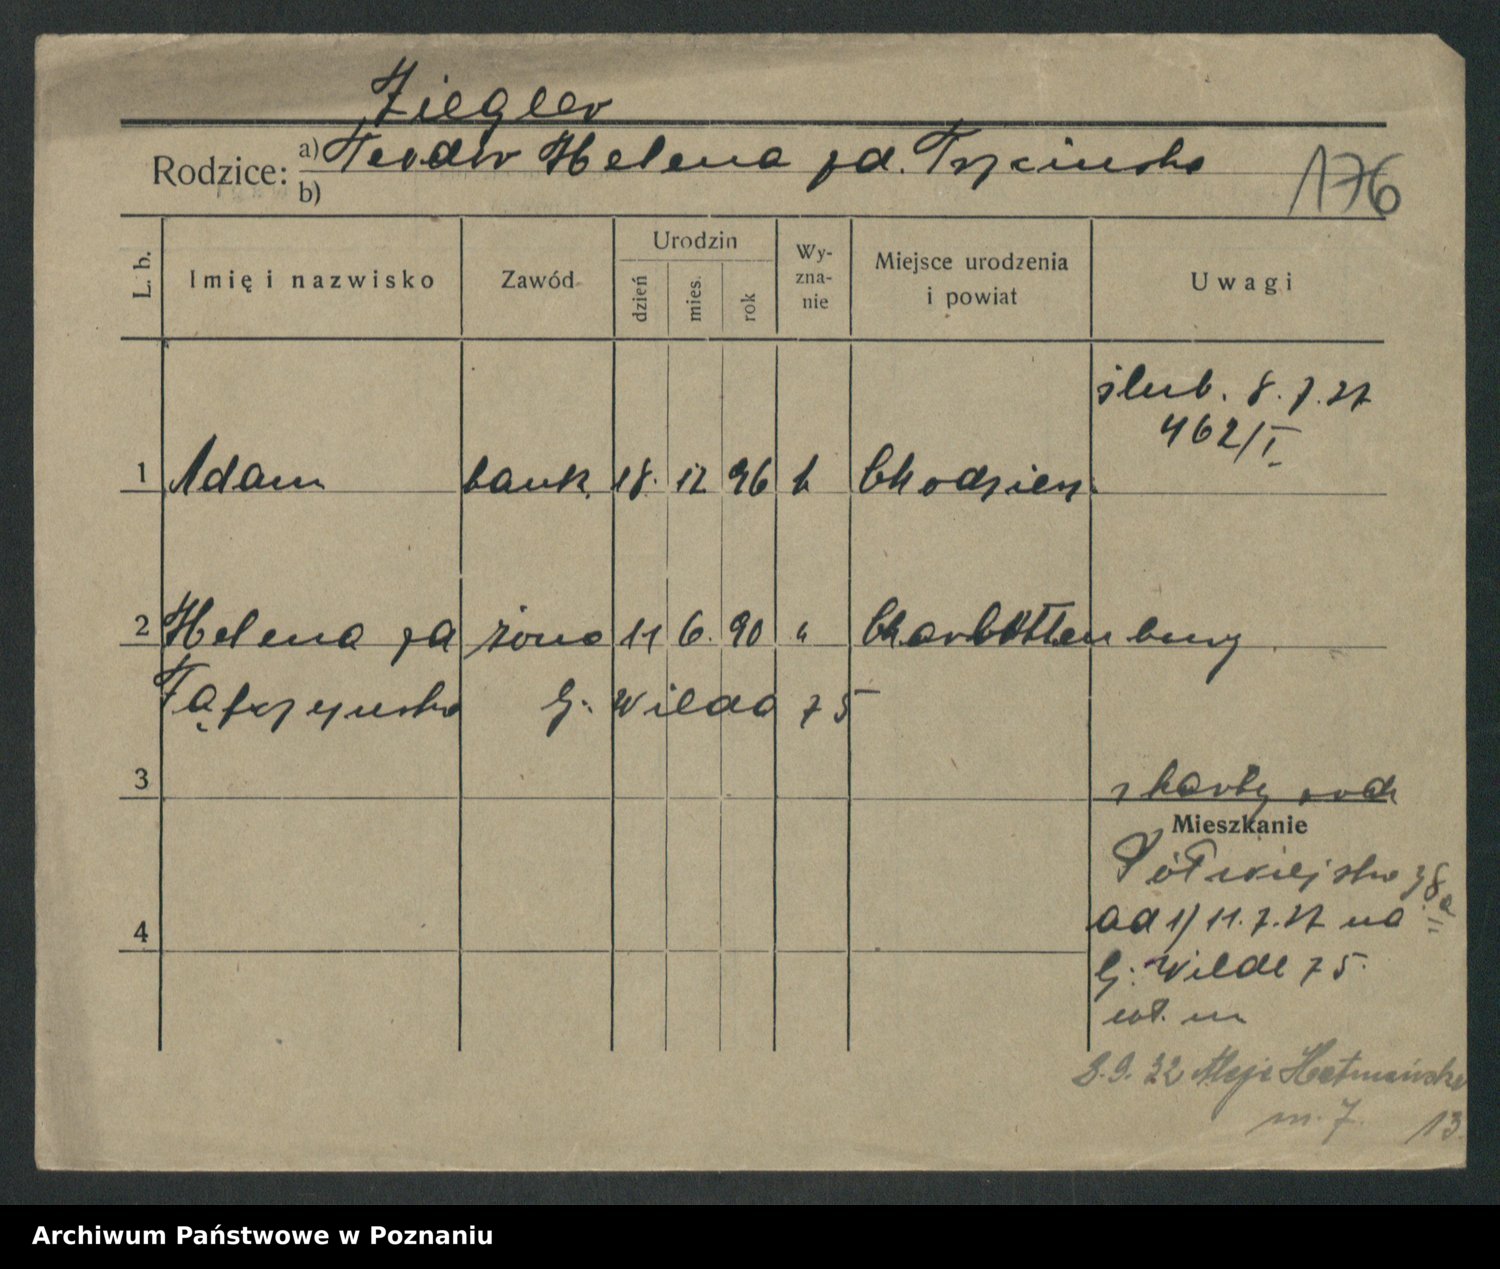 Ziegler
Rodzice: a) Teodor Helena zd. Trzcinska
b)
176
L. b.
Imię i nazwisko
Zawód
Urodzin
dzień
mies.
rok
Wy-
zna-
nie
Miejsce urodzenia
i powiat
Uwagi
ślub. 8.7.27
462/I.
1 Adam bank. 18. 12 96 k Chodzież
2 Helena zd żona 11 6. 90 " Charlottenburg
G. Wilda 75
3
z karty rodz
Mieszkanie
Półwiejska 38a
ad 1) 11.7.27 na
G. Wilda 75.
4
8.9.32 Aleje Hetmańska
m. 7. 13
Archiwum Państwowe w Poznaniu